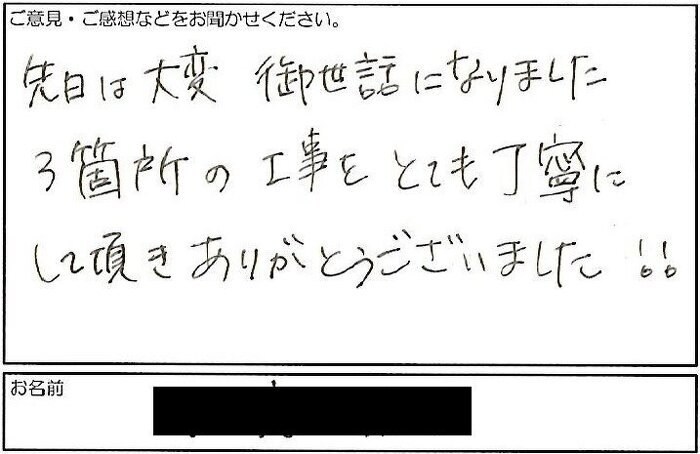 ご意見・ご感想などをお聞かせください。
先日は大変 御世話になりました
3箇所の工事をとても丁寧に
して頂きありがとうございました!!
お名前